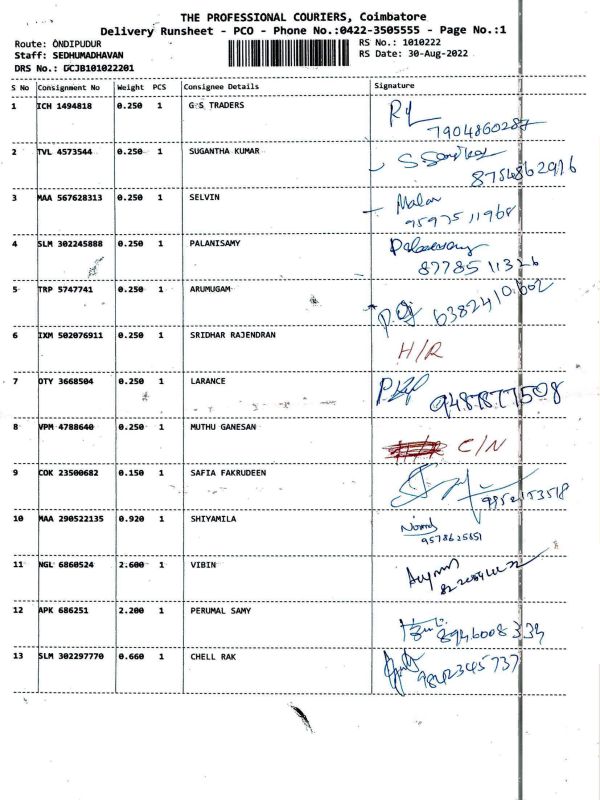 THE PROFESSIONAL COURIERS, Coimbatore
Delivery Runsheet - PCO - Phone No.:0422-3505555 - Page No.:1
Route: ONDIPUDUR RS No.: 1010222
Staff: SEDHUMADHAVAN RS Date: 30-Aug-2022
DRS No.: DCJB101022201
S No Consignment No Weight PCS Consignee Details Signature
1 ICH 1494818 0.250 1 G S TRADERS
7904860287
2 TVL 4573544 0.250 1 SUGANTHA KUMAR
8754862916
3 MAA 567628313 0.250 1 SELVIN Malar
9597511968
4 SLM 302245888 0.250 1 PALANISAMY
8778511326
5 TRP 5747741 0.250 1 ARUMUGAM
6382410602
6 IXM 502076911 0.250 1 SRIDHAR RAJENDRAN
H/R
7 OTY 3668504 0.250 1 LARANCE
9487877508
8 VPM 4788640 0.250 1 MUTHU GANESAN
C/N
9 COK 23500682 0.150 1 SAFIA FAKRUDEEN
9952153518
10 MAA 290522135 0.920 1 SHIYAMILA
9578625651
11 NGL 6860524 2.600 1 VIBIN
12 APK 686251 2.200 1 PERUMAL SAMY
8946008334
13 SLM 302297770 0.660 1 CHELL RAK
9842345737